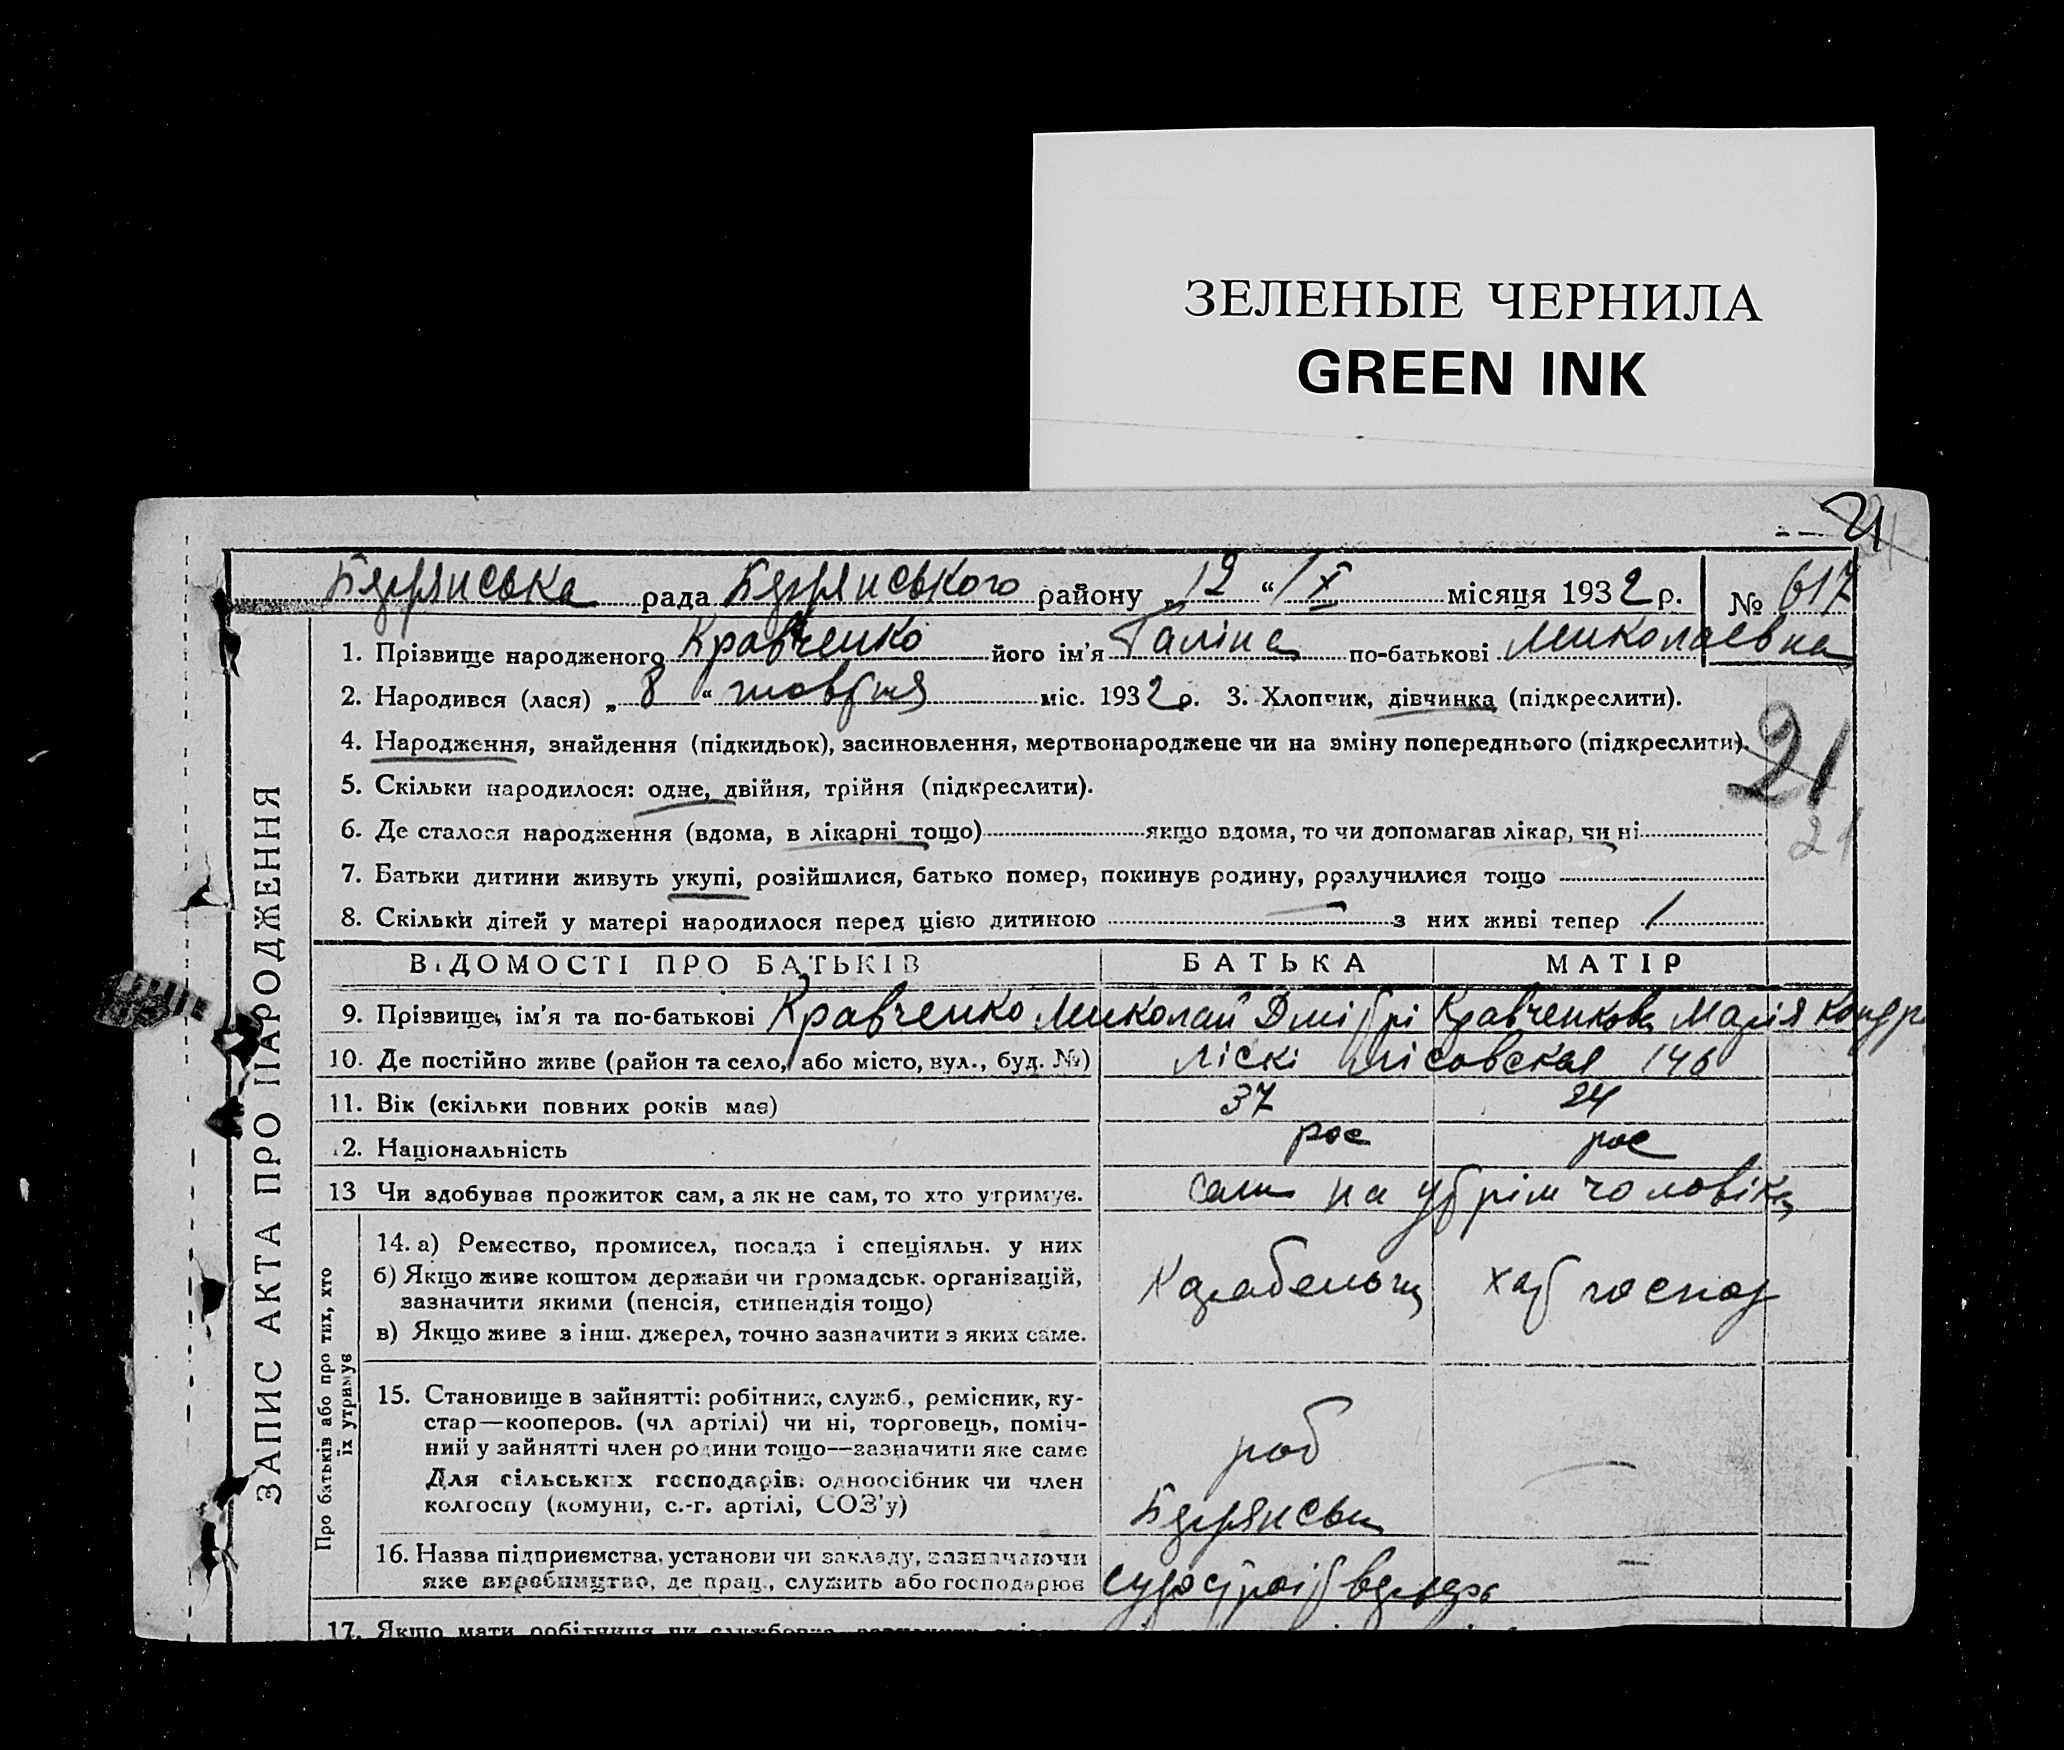 ЗЕЛЕНЫЕ ЧЕРНИЛА
GREEN INK
21
рада району „ 12 “ / X місяця 1932 р. № 617
1. Прізвище народженого Кравченко його ім'я Галіна по-батькові Миколаевна
2. Народився (лася) „ 8 “ жовтня міс. 1932 р. 3. Хлопчик, дівчинка (підкреслити).
4. Народження, знайдення (підкидьок), засиновлення, мертвонароджене чи на зміну попереднього (підкреслити).
21
5. Скільки народилося: одне, двійня, трійня (підкреслити).
6. Де сталося народження (вдома, в лікарні тощо) якщо вдома, то чи допомагав лікар, чи ні
21
7. Батьки дитини живуть укупі, розійшлися, батько помер, покинув родину, розлучилися тощо
8. Скільки дітей у матері народилося перед цією дитиною — з них живі тепер 1
ВІДОМОСТІ ПРО БАТЬКІВ БАТЬКА МАТІР
9. Прізвище, ім'я та по-батькові Кравченко Миколай Дмітрі Кравченкова Марія Кондр
10. Де постійно живе (район та село, або місто, вул., буд. №) Ліскі Лісовская 146
11. Вік (скільки повних років має) 37 24
12. Національність рос рос
13 Чи здобував прожиток сам, а як не сам, то хто утримує. сам на утрім чоловіка
14. а) Ремество, промисел, посада і спеціяльн. у них
б) Якщо живе коштом держави чи громадськ. організацій,
зазначити якими (пенсія, стипендія тощо)
в) Якщо живе з інш. джерел, точно зазначити з яких саме.
15. Становище в зайнятті: робітник, служб., ремісник, ку-
стар—кооперов. (чл артілі) чи ні, торговець, поміч-
ний у зайнятті член родини тощо—зазначити яке саме роб —
Для сільських господарів: одноосібник чи член
колгоспу (комуни, с.-г. артілі, СОЗ'у)
16. Назва підприємства, установи чи закладу, зазначаючи —
яке виробництво, де прац., служить або господарює
17. Якщо мати робітниця чи службовка,
ЗАПИС АКТА ПРО НАРОДЖЕННЯ
Про батьків або про тих, хто
їх утримує